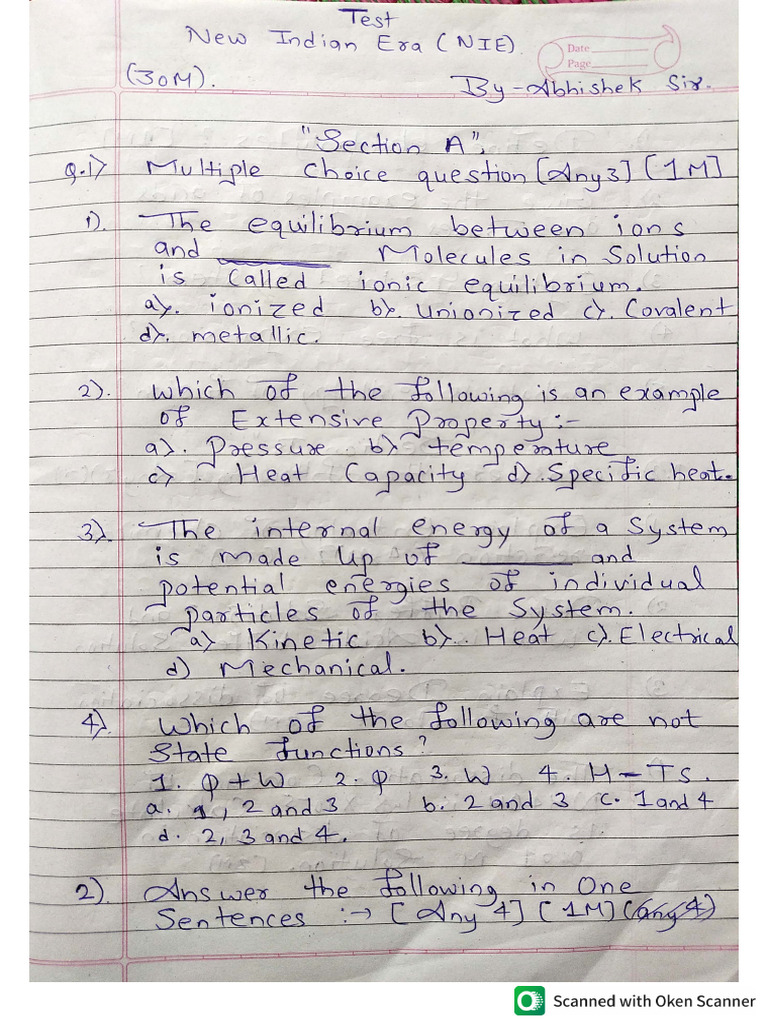 Test
New Indian Era (NIE).
Date
Page
(30M).
By - Abhishek Sir.
"Section A".
Q.1) Multiple choice question [Any 3] [1M]
1). The equilibrium between ions
and ________ Molecules in Solution
is called ionic equilibrium.
a). ionized b). Unionized c). Covalent
d). metallic.
2). Which of the following is an example
of Extensive Property :-
a). Pressure b) temperature
c) Heat Capacity d). Specific heat.
3). The internal energy of a System
is made up of ________ and
potential energies of individual
particles of the System.
a) Kinetic b). Heat c). Electrical
d) Mechanical.
4). Which of the following are not
State functions?
1. φ + W 2. φ 3. W 4. H - TS.
a. 1, 2 and 3 b. 2 and 3 c. 1 and 4
d. 2, 3 and 4.
2). Answer the following in One
Sentences :→ [Any 4] [1M] (any 4)
Scanned with Oken Scanner